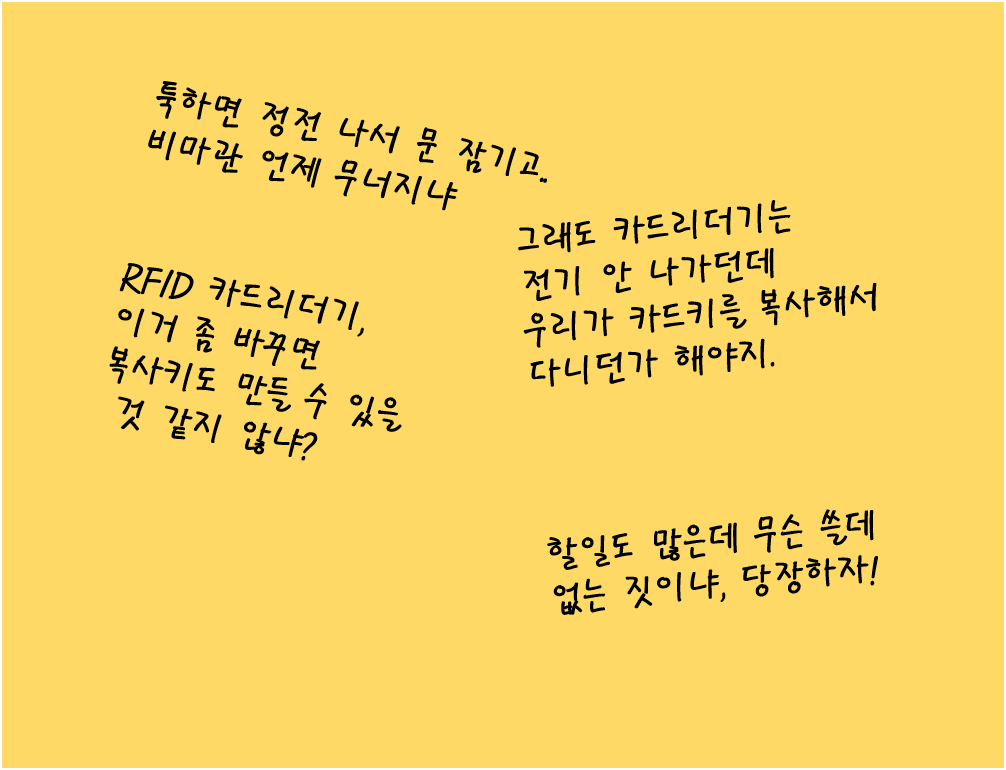 툭하면 정전 나서 문 잠기고..
비마관 언제 무너지냐
그래도 카드리더기는
전기 안 나가던데
우리가 카드키를 복사해서
다니던가 해야지.
RFID 카드리더기,
이거 좀 바꾸면
복사키도 만들 수 있을
것 같지 않냐?
할일도 많은데 무슨 쓸데
없는 짓이냐, 당장하자!